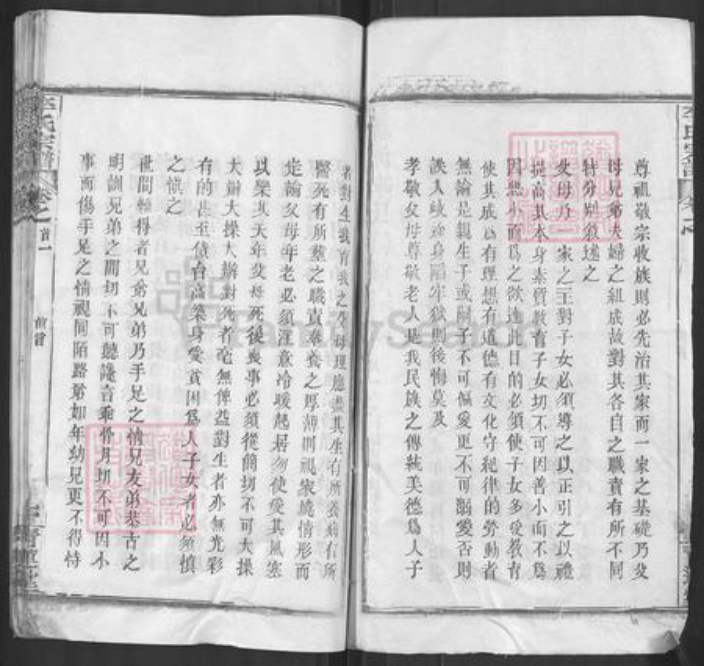 尊祖敬宗收族則必先治其家而一家之基礎乃父
母兄弟夫婦之組成故對其各自之職責有所不同
特分別叙述之
父母乃一家之主對子女必須導之以正引之以禮
提高其本身素質教育子女切不可因善小而不為
因惡小而為之欲達此目的必須使子女多受教育
使其成為有理想有道德有文化守紀律的勞動者
無論是親生子或嗣子不可偏愛更不可溺愛否則
誤人歧途身陷牢獄則後悔莫及
孝敬父母尊敬老人是我民族之傳統美德為人子
者對生我育我之父母理應盡其生有所養病有所
醫死有所塟之職責奉養之厚薄則視家境情形而
定諭父母年老必須注意冷暖起居勿使愛其風寒
以樂其天年父母死後喪事必須從簡切不可大操
大辦大操大辦對死者毫無俾益對生者亦無光彩
有的甚至債台高築身愛貧困為人子女者必須慎
之慎之
世間難得者兄弟兄弟乃手足之情兄友弟恭古之
明訓兄弟之間切不可聽讒言乖骨月切不可因小
事而傷手足之情視同陌路第如年幼兄更不得恃
李氏宗譜
卷之首一
FamilySearch